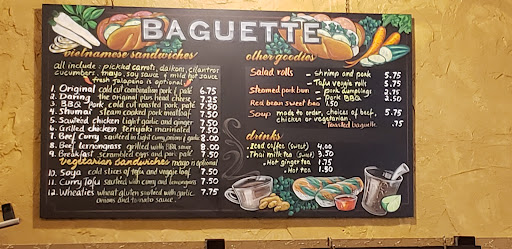 BAGUETTE
vietnamese sandwiches
all include: pickled carrots, daikon, cilantro
cucumbers, mayo, soy sauce & mild hot sauce
* fresh jalapeno is optional *
1. Original cold cut combination pork & pate 6.75
2. Daring the original plus head cheese 7.25
3. B.B.Q Pork cold cut roasted pork, pate 7.50
4. Shumai steam cooked pork meatloaf 7.50
5. Sauteed chicken light garlic and ginger 7.50
6. Grilled chicken teriyaki marinated 7.50
7. Beef curry sauteed in light curry, onions & garlic 8.00
8. Beef lemongrass grilled with BBQ sauce 8.00
9. Breakfast scrambled eggs and pork pate 7.50
Vegetarian Sandwiches mayo is optional
10. Soya cold slices of tofu and veggie loaf 7.50
11. Curry Tofu sauteed with curry and lemongrass 7.50
12. Wheaties wheat gluten sauteed with garlic 7.75
onions and tomato sauce
other goodies
Salad rolls - shrimp and pork 5.75
- Tofu veggie roll 5.75
Steamed pork bun - pork dumplings
Pork BBQ 2.50
Red bean sweet bun
Soup made to order, choices of beef, 5.75
chicken or vegetarian
Toasted baguette .75
drinks
Iced coffee (sweet) 4.00
Thai milk tea (sweet) 3.50
• Hot ginger tea 1.75
• Hot tea 1.50